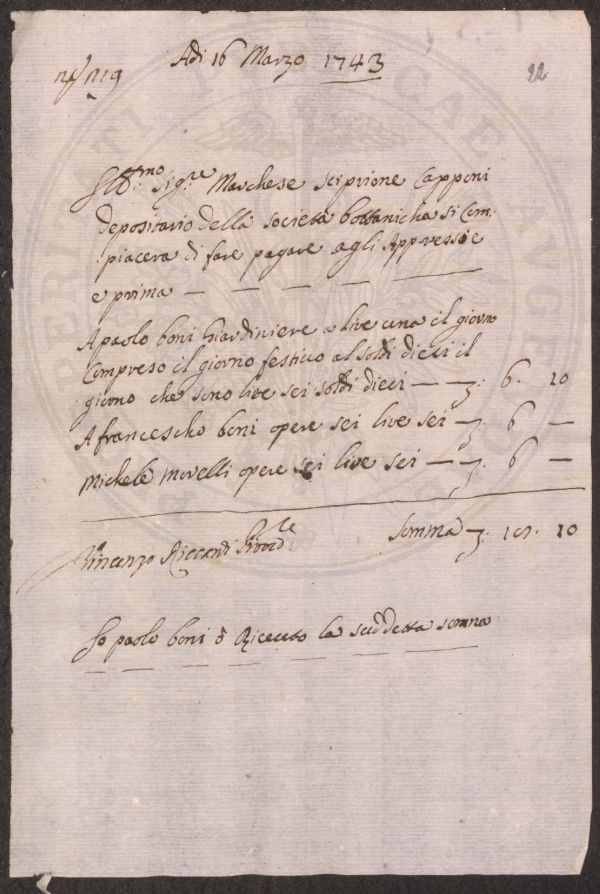 Adi 16 Marzo 1743
22
Ill.mo Sig.re Marchese Scipione Capponi
depositario della società bottanicha si com:
:piacera di fare pagare agli Appresso e
e prima
A paolo boni Giardiniere a lire una il giorno
Compreso il giorno festivo al soldi dieci il
giorno che sono lire sei soldi dieci — 6. 10
A francescho boni opere sei lire sei — 6 —
Michele morelli opere sei lire sei — 6 —
Somma 10
Vincenzo
Io paolo boni ò Riceuto la suddetta somma